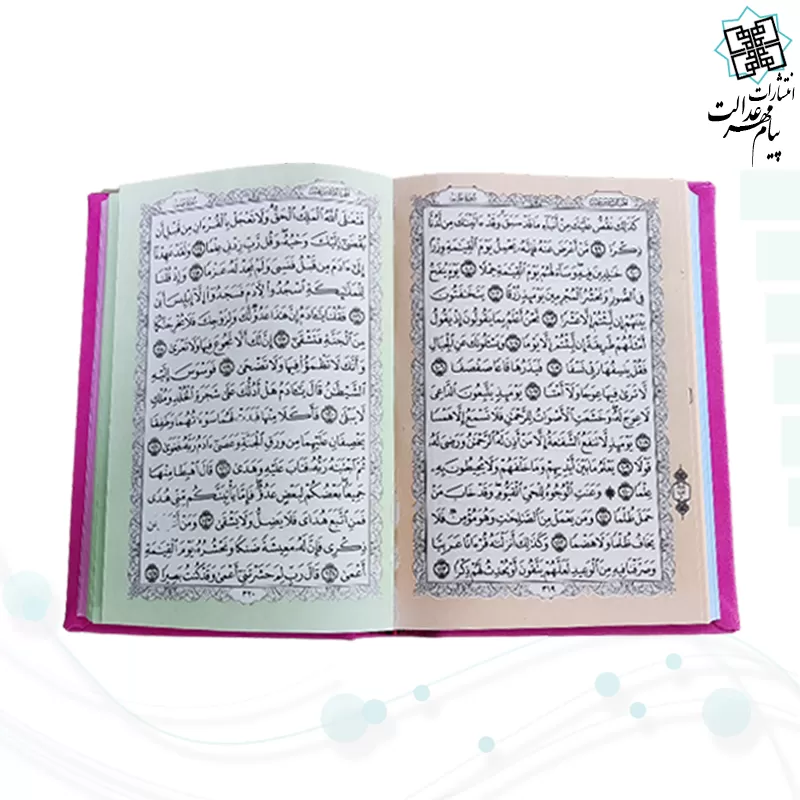 انتشارات
پیام مهر عدالت
كَذَٰلِكَ نَقُصُّ عَلَيْكَ مِنْ أَنۢبَآءِ مَا قَدْ سَبَقَ وَقَدْ ءَاتَيْنَٰكَ مِن لَّدُنَّا
ذِكْرًا ﴿٩٩﴾ مَّنْ أَعْرَضَ عَنْهُ فَإِنَّهُۥ يَحْمِلُ يَوْمَ ٱلْقِيَٰمَةِ وِزْرًا
﴿١٠٠﴾ خَٰلِدِينَ فِيهِ وَسَآءَ لَهُمْ يَوْمَ ٱلْقِيَٰمَةِ حِمْلًا ﴿١٠١﴾ يَوْمَ يُنفَخُ
فِى ٱلصُّورِ وَنَحْشُرُ ٱلْمُجْرِمِينَ يَوْمَئِذٍ زُرْقًا ﴿١٠٢﴾ يَتَخَٰفَتُونَ
بَيْنَهُمْ إِن لَّبِثْتُمْ إِلَّا عَشْرًا ﴿١٠٣﴾ نَّحْنُ أَعْلَمُ بِمَا يَقُولُونَ إِذْ يَقُولُ
أَمْثَلُهُمْ طَرِيقَةً إِن لَّبِثْتُمْ إِلَّا يَوْمًا ﴿١٠٤﴾ وَيَسْـَٔلُونَكَ عَنِ ٱلْجِبَالِ
فَقُلْ يَنسِفُهَا رَبِّى نَسْفًا ﴿١٠٥﴾ فَيَذَرُهَا قَاعًا صَفْصَفًا ﴿١٠٦﴾
لَّا تَرَىٰ فِيهَا عِوَجًا وَلَآ أَمْتًا ﴿١٠٧﴾ يَوْمَئِذٍ يَتَّبِعُونَ ٱلدَّاعِىَ
لَا عِوَجَ لَهُۥ وَخَشَعَتِ ٱلْأَصْوَاتُ لِلرَّحْمَٰنِ فَلَا تَسْمَعُ إِلَّا هَمْسًا
﴿١٠٨﴾ يَوْمَئِذٍ لَّا تَنفَعُ ٱلشَّفَٰعَةُ إِلَّا مَنْ أَذِنَ لَهُ ٱلرَّحْمَٰنُ وَرَضِىَ لَهُۥ
قَوْلًا ﴿١٠٩﴾ يَعْلَمُ مَا بَيْنَ أَيْدِيهِمْ وَمَا خَلْفَهُمْ وَلَا يُحِيطُونَ بِهِۦ
عِلْمًا ﴿١١٠﴾ وَعَنَتِ ٱلْوُجُوهُ لِلْحَىِّ ٱلْقَيُّومِ وَقَدْ خَابَ مَنْ
حَمَلَ ظُلْمًا ﴿١١١﴾ وَمَن يَعْمَلْ مِنَ ٱلصَّٰلِحَٰتِ وَهُوَ مُؤْمِنٌ فَلَا
يَخَافُ ظُلْمًا وَلَا هَضْمًا ﴿١١٢﴾ وَكَذَٰلِكَ أَنزَلْنَٰهُ قُرْءَانًا عَرَبِيًّا
وَصَرَّفْنَا فِيهِ مِنَ ٱلْوَعِيدِ لَعَلَّهُمْ يَتَّقُونَ أَوْ يُحْدِثُ لَهُمْ ذِكْرًا ﴿١١٣﴾
٣١٩
فَتَعَٰلَى ٱللَّهُ ٱلْمَلِكُ ٱلْحَقُّ وَلَا تَعْجَلْ بِٱلْقُرْءَانِ مِن قَبْلِ أَن
يُقْضَىٰٓ إِلَيْكَ وَحْيُهُۥ وَقُل رَّبِّ زِدْنِى عِلْمًا ﴿١١٤﴾ وَلَقَدْ عَهِدْنَآ
إِلَىٰٓ ءَادَمَ مِن قَبْلُ فَنَسِىَ وَلَمْ نَجِدْ لَهُۥ عَزْمًا ﴿١١٥﴾ وَإِذْ قُلْنَا
لِلْمَلَٰٓئِكَةِ ٱسْجُدُوا۟ لِءَادَمَ فَسَجَدُوٓا۟ إِلَّآ إِبْلِيسَ أَبَىٰ
﴿١١٦﴾ فَقُلْنَا يَٰٓـَٔادَمُ إِنَّ هَٰذَا عَدُوٌّ لَّكَ وَلِزَوْجِكَ فَلَا يُخْرِجَنَّكُمَا
مِنَ ٱلْجَنَّةِ فَتَشْقَىٰٓ ﴿١١٧﴾ إِنَّ لَكَ أَلَّا تَجُوعَ فِيهَا وَلَا تَعْرَىٰ ﴿١١٨﴾
وَأَنَّكَ لَا تَظْمَؤُا۟ فِيهَا وَلَا تَضْحَىٰ ﴿١١٩﴾ فَوَسْوَسَ إِلَيْهِ
ٱلشَّيْطَٰنُ قَالَ يَٰٓـَٔادَمُ هَلْ أَدُلُّكَ عَلَىٰ شَجَرَةِ ٱلْخُلْدِ وَمُلْكٍ
لَّا يَبْلَىٰ ﴿١٢٠﴾ فَأَكَلَا مِنْهَا فَبَدَتْ لَهُمَا سَوْءَٰتُهُمَا وَطَفِقَا
يَخْصِفَانِ عَلَيْهِمَا مِن وَرَقِ ٱلْجَنَّةِ وَعَصَىٰٓ ءَادَمُ رَبَّهُۥ فَغَوَىٰ ﴿١٢١﴾
ثُمَّ ٱجْتَبَٰهُ رَبُّهُۥ فَتَابَ عَلَيْهِ وَهَدَىٰ ﴿١٢٢﴾ قَالَ ٱهْبِطَا مِنْهَا
جَمِيعًۢا بَعْضُكُمْ لِبَعْضٍ عَدُوٌّ فَإِمَّا يَأْتِيَنَّكُم مِّنِّى هُدًى
فَمَنِ ٱتَّبَعَ هُدَاىَ فَلَا يَضِلُّ وَلَا يَشْقَىٰ ﴿١٢٣﴾ وَمَنْ
ذِكْرِى فَإِنَّ لَهُۥ مَعِيشَةً ضَنكًا وَنَحْشُرُهُۥ يَوْمَ ٱلْقِيَٰمَةِ
أَعْمَىٰ ﴿١٢٤﴾ قَالَ رَبِّ لِمَ حَشَرْتَنِىٓ أَعْمَىٰ وَقَدْ كُنتُ بَصِيرًا ﴿١٢٥﴾
٣٢٠